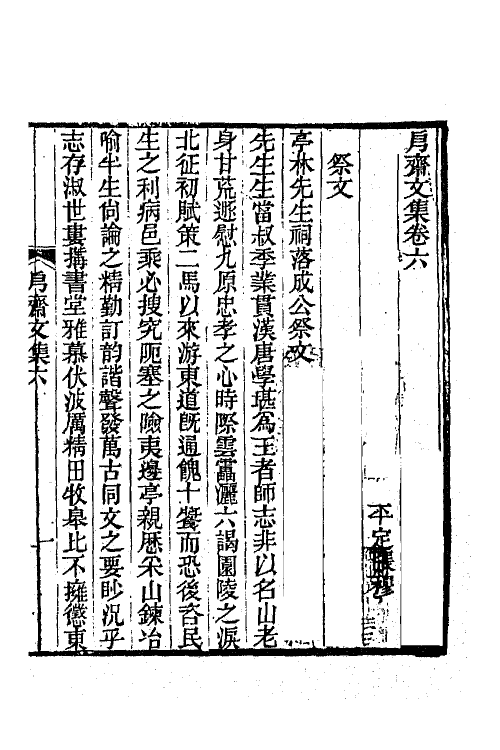 㐆齋文集卷六
平定張穆
祭文
亭林先生祠落成公祭文
先生生當叔季業貫漢唐學堪爲王者師志非以名山老
身甘荒遯慰九原忠孝之心時際雲靁灑六謁園陵之淚
北征初賦策二馬以來游東道旣通餽十漿而恐後咨民
生之利病邑乘必搜究阨塞之險夷邊亭親歷采山鍊冶
喻半生尙論之精勤訂韵諧聲發萬古同文之要眇況乎
志存淑世婁搆書堂雅慕伏波厲精田牧皋比不擁懲東
㐆齋文集六
一